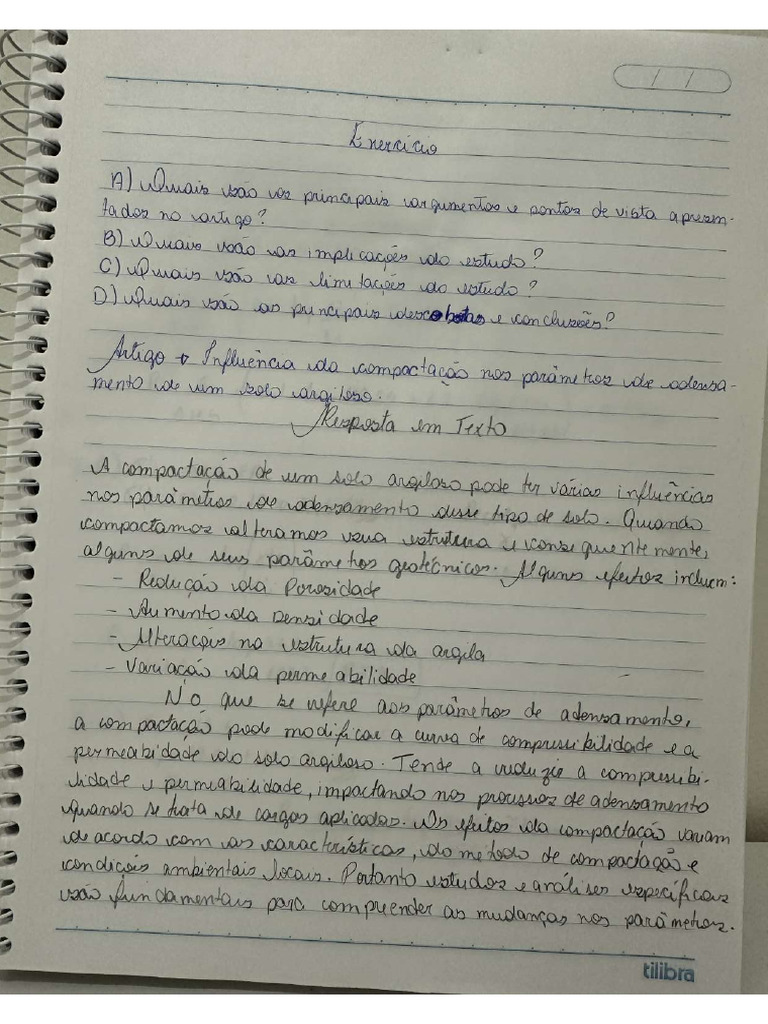 / /
Exercício
A) Quais são os principais argumentos e pontos de vista apresen-
tados no artigo?
B) Quais são as implicações do estudo?
C) Quais são as limitações do estudo?
D) Quais são as principais descobertas e conclusões?
Artigo → Influência da compactação nos parâmetros de adensa-
mento de um solo argiloso.
Resposta em Texto
A compactação de um solo argiloso pode ter várias influências
nos parâmetros de adensamento desse tipo de solo. Quando
compactamos alteramos sua estrutura e consequentemente,
alguns de seus parâmetros geotécnicos. Alguns efeitos incluem:
- Redução da Porosidade
- Aumento da Densidade
- Alterações na estrutura da argila
- Variação da permeabilidade
No que se refere aos parâmetros de adensamento,
a compactação pode modificar a curva de compressibilidade e a
permeabidade do solo argiloso. Tende a reduzir a compressibi-
lidade e permeabilidade, impactando nos processos de adensamento
quando se trata de cargas aplicadas. Os efeitos da compactação variam
de acordo com as características, do método de compactação e
condições ambientais locais. Portanto estudos e análises específicas
são fundamentais para compreender as mudanças nos parâmetros.
tilibra